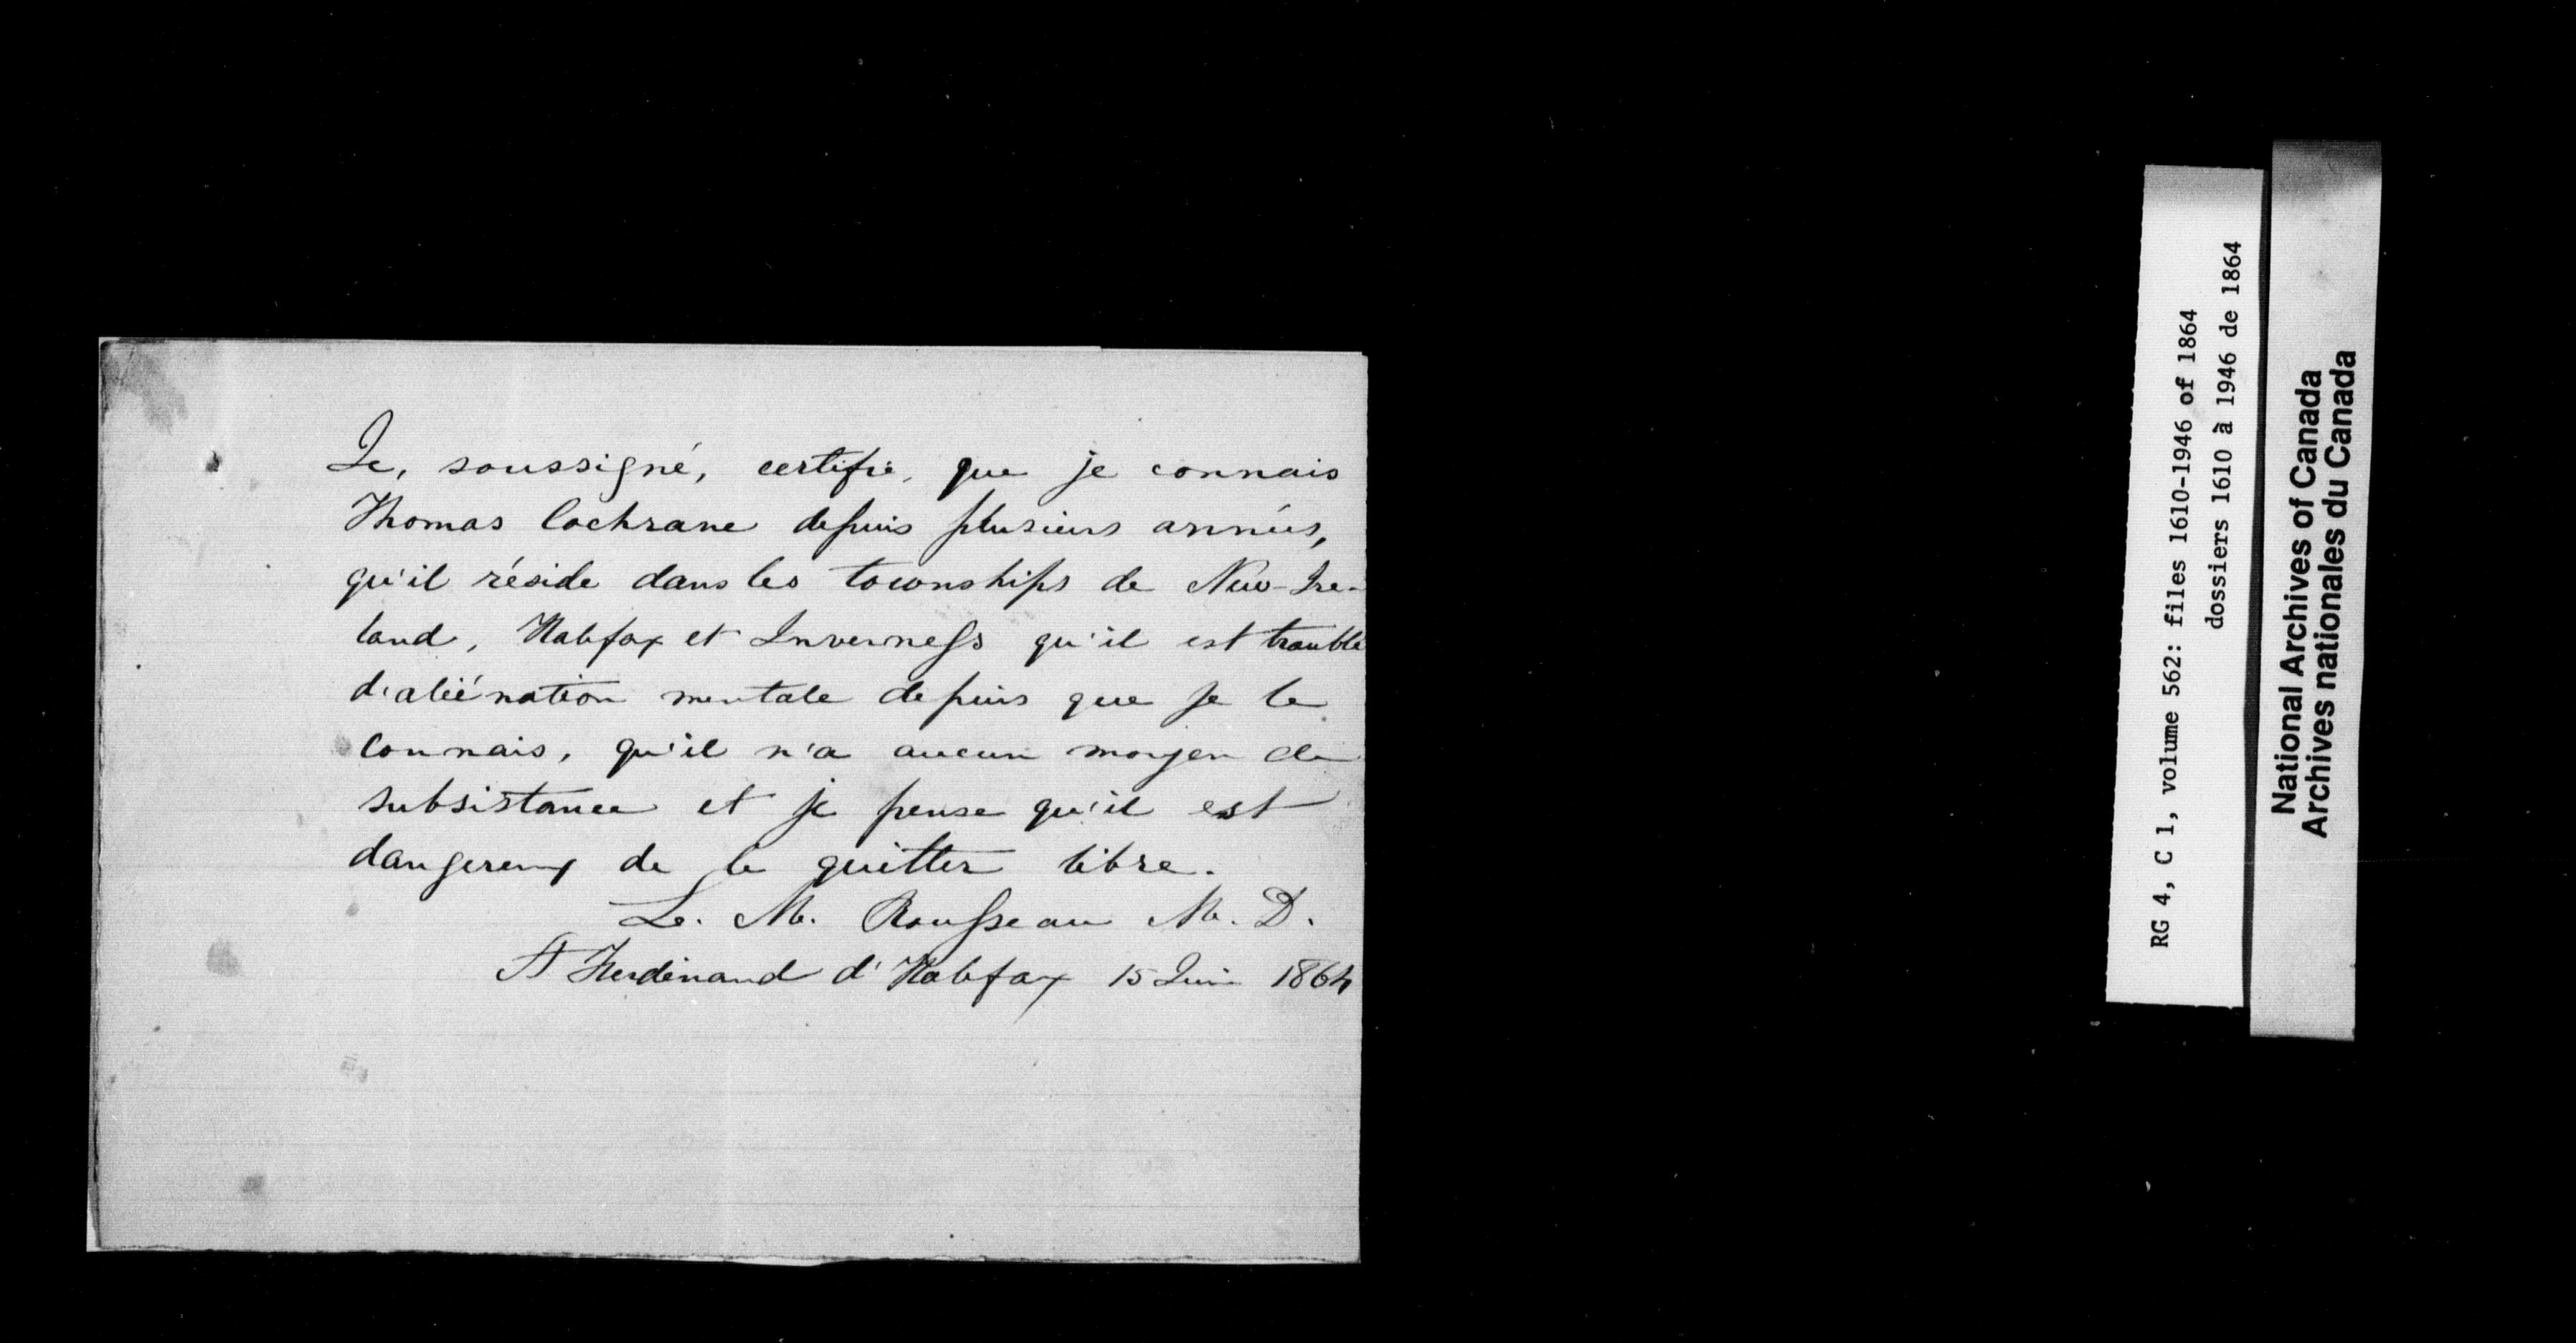 Je, soussigné, certifie, que je connais
Thomas Cochrane depuis plusieurs années,
qu'il réside dans les townships de New-Ire-
land, Halifax et Inverness qu'il est troublé
d'aliénation mentale depuis que je le
connais, qu'il n'a aucun moyen de
subsistance et je pense qu'il est
dangereux de le quitter libre.
L. M. Rousseau M. D.
St Ferdinand d'Halifax 15 Juin 1864
RG 4, C 1, volume 562: files 1610-1946 of 1864
dossiers 1610 à 1946 de 1864
National Archives of Canada
Archives nationales du Canada